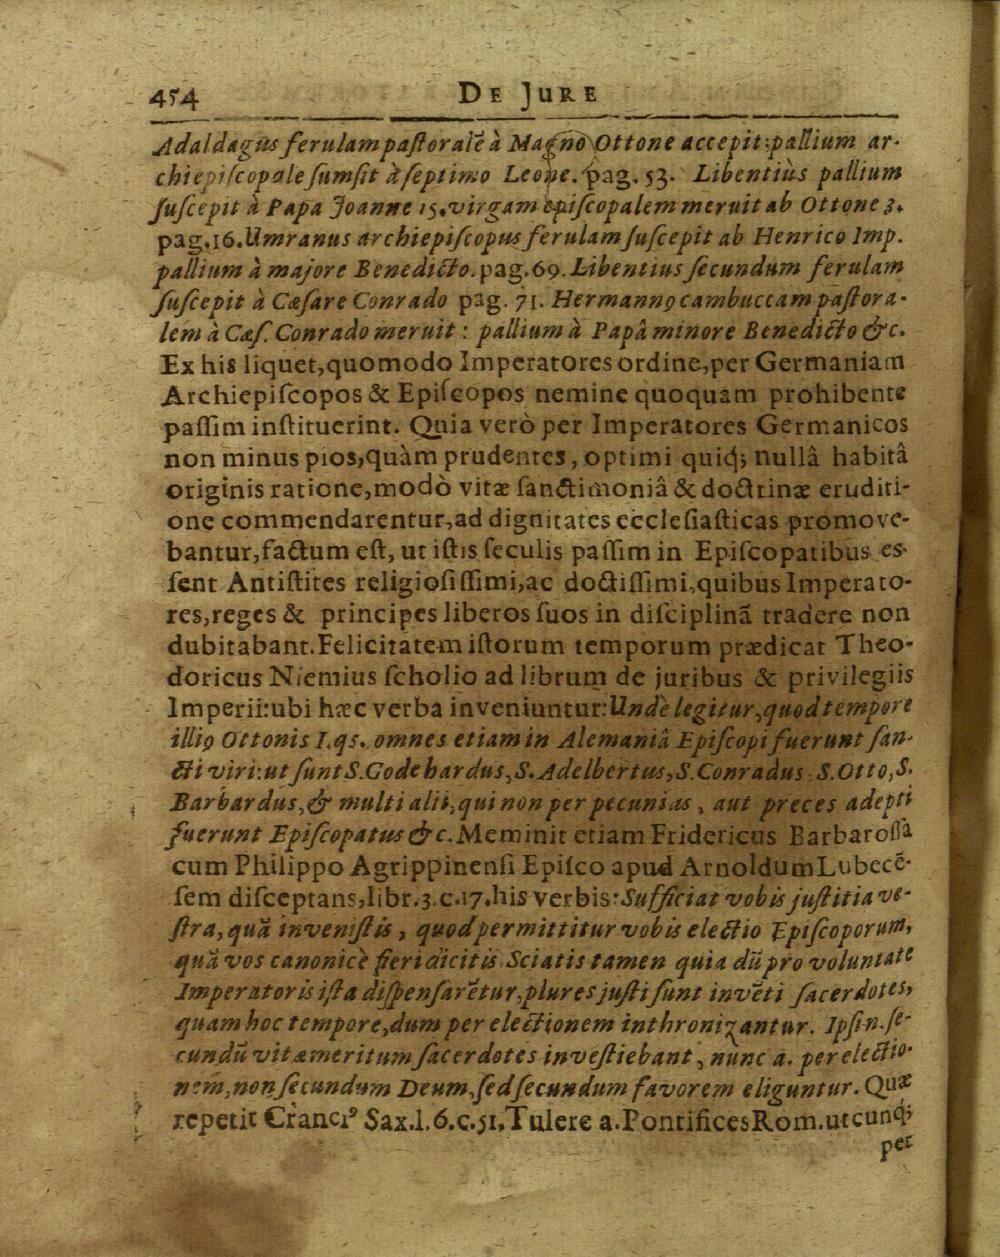 454 DE JURE
Adaldagus ferulam pastoralē à Magno Ottone accepit: pallium ar-
chiepiscopale sumsit à septimo Leone. pag. 53. Libentiùs pallium
suscepit à Papa Joanne 15. virgam episcopalem meruit ab Ottone 3.
pag. 16. Umranus archiepiscopus ferulam suscepit ab Henrico Imp.
pallium à majore Benedicto. pag. 69. Libentius secundum ferulam
suscepit à Cæsare Conrado pag. 71. Hermannꝰ cambuccam pastora-
lem à Cæs. Conrado meruit: pallium à Papâ minore Benedicto &c.
Ex his liquet, quomodo Imperatores ordine, per Germaniam
Archiepiscopos & Episcopos nemine quoquam prohibente
passim instituerint. Quia verò per Imperatores Germanicos
non minus pios, quàm prudentes, optimi quiq; nullâ habitâ
originis ratione, modò vitæ sanctimoniâ & doctrinæ eruditi-
one commendarentur, ad dignitates ecclesiasticas promove-
bantur, factum est, ut istis seculis passim in Episcopatibus es-
sent Antistites religiosissimi, ac doctissimi, quibus Imperato-
res, reges & principes liberos suos in disciplinā tradere non
dubitabant. Felicitatem istorum temporum prædicat Theo-
doricus Niemius scholio ad librum de juribus & privilegiis
Imperii: ubi hæc verba inveniuntur: Unde legitur, quod tempore
illiꝰ Ottonis I. qs. omnes etiam in Alemaniâ Episcopi fuerunt san-
cti viri: ut sunt S. Godehardus, S. Adelbertus, S. Conradus, S. Otto, S.
Barbardus, & multi alii, qui non per pecunias, aut preces adepti
fuerunt Episcopatus &c. Meminit etiam Fridericus Barbarossa
cum Philippo Agrippinensi Episco apud Arnoldum Lubecē-
sem disceptans, libr. 3. c. 17. his verbis: Sufficiat vobis justitia ve-
stra, quā invenistis, quod permittitur vobis electio Episcoporum,
quā vos canonicè fieri dicitis. Sciatis tamen quia dū pro voluntate
Imperatoris ista dispensarētur, plures justi sunt invēti sacerdotes,
quam hoc tempore, dum per electionem inthronizantur. Ipsi n. se-
cundū vitæ meritum sacerdotes investiebant, nunc a. per electio-
nem, non secundum Deum, sed secundum favorem eliguntur. Quæ
repetit Crancıꝰ Sax. l. 6. c. 51. Tulere a. Pontifices Rom. utcunq;
per